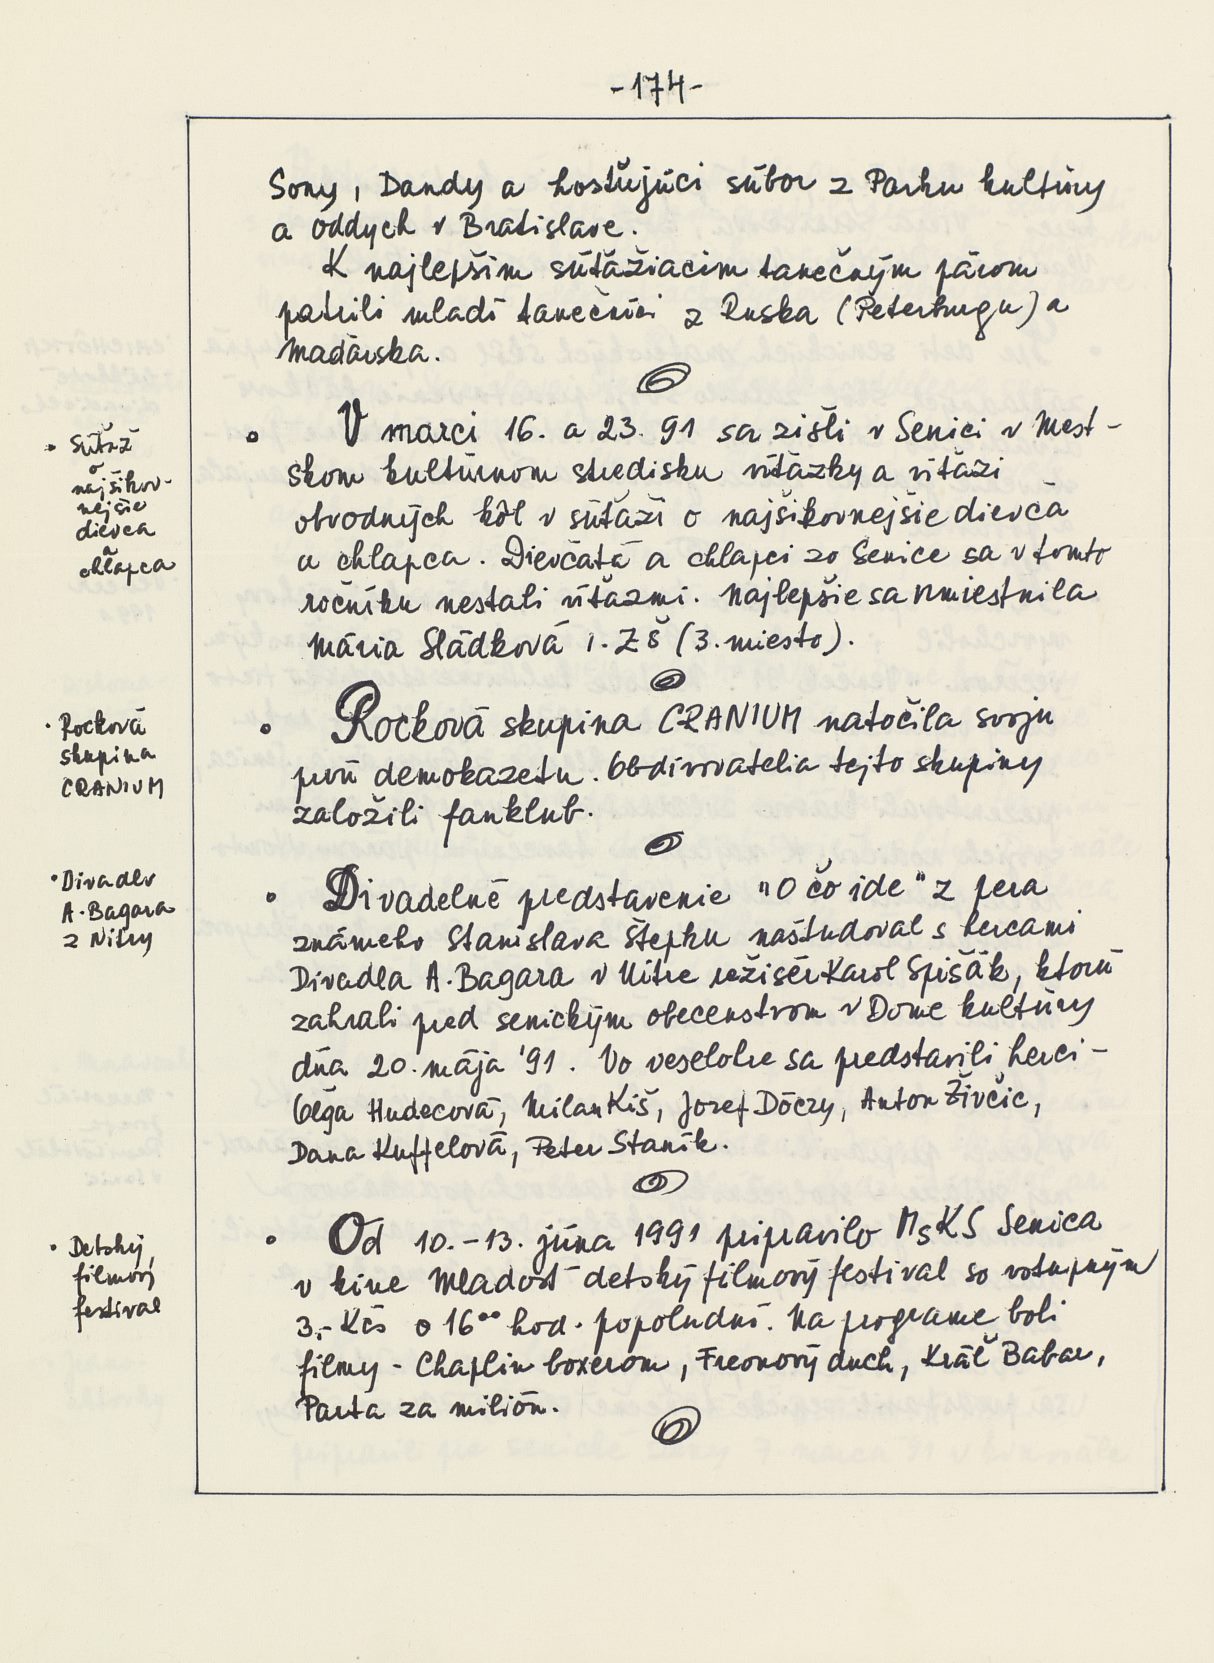 -174-
Sony, Dandy a hosťujúci súbor z Parku kultúry
a oddych v Bratislave.
K najlepším súťažiacim tanečným párom
patrili mladí tanečníci z Ruska (Peterburgu) a
Maďarska.
• Súťaž
o
najšikov-
nejšie
dievča
a
chlapca
• V marci 16. a 23. 91 sa zišli v Senici v Mest-
skom kultúrnom stredisku víťazky a víťazi
obvodných kôl v súťaži o najšikovnejšie dievča
a chlapca. Dievčatá a chlapci zo Senice sa v tomto
ročníku nestali víťazmi. Najlepšie sa umiestnila
Mária Sládková 1. ZŠ (3. miesto).
• Rocková
skupina
CRANIUM
• Rocková skupina CRANIUM natočila svoju
prvú demokazetu. Obdivovatelia tejto skupiny
založili fanklub.
• Divadlo
A. Bagara
z Nitry
• Divadelné predstavenie "O čo ide" z pera
známeho Stanislava Štepku naštudoval s hercami
Divadla A. Bagara v Nitre režisér Karol Spišák, ktorú
zahrali pred senickým obecenstvom v Dome kultúry
dňa 20. mája '91. Vo veselohre sa predstavili herci -
Oľga Hudecová, Milan Kiš, Jozef Dóczy, Anton Živčic,
Dana Kuffelová, Peter Staník.
• Detský
filmový
festival
• Od 10.-13. júna 1991 pripravilo MsKS Senica
v kine Mladosť detský filmový festival so vstupným
3,- Kčs o 16°° hod. popoludní. Na programe boli
filmy - Chaplin boxerom, Freonový duch, Kráľ Babar,
Parta za milión.